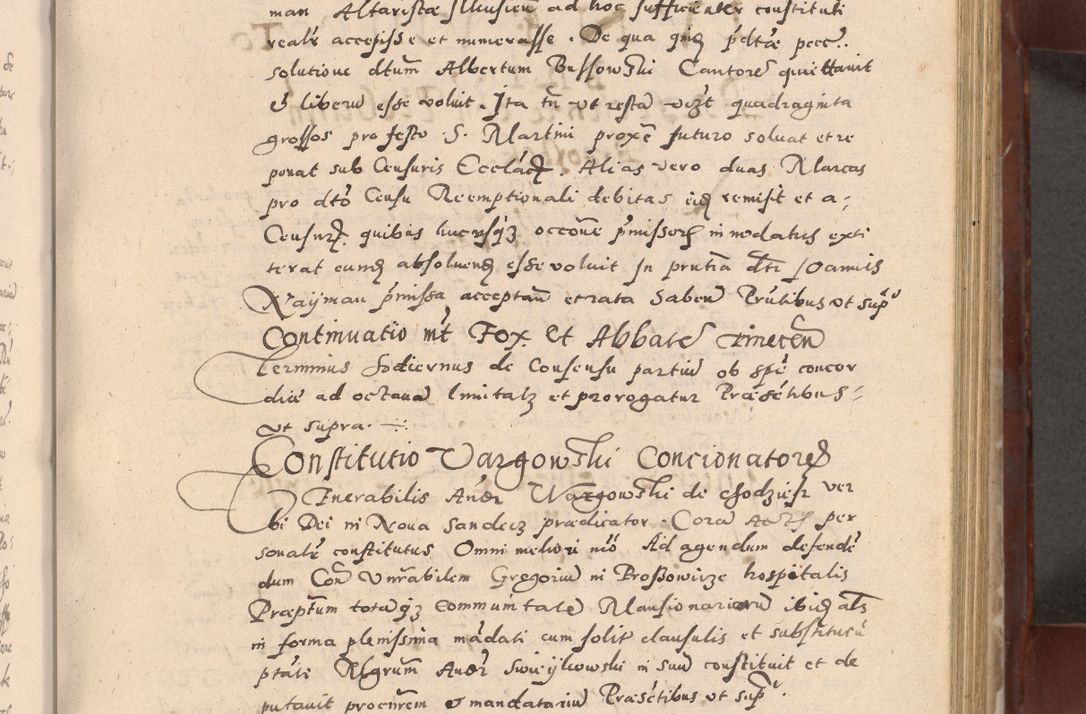 man Altaristæ Illusien ad hoc sufficienter constituti
realr accepisse et numerasse. De qua quidē pdtæ pece..
solutione dtum Albertum Bussowski Cantorē quiettavit
& liberū esse voluit. Ita tn ut resta vizt quadraginta
grossos pro festo S. Martini proxē futuro solvat et re
ponat sub Censuris Ecclācz. Alias vero duas Marcas
pro dtō Censu Reemptionali debitas eid remisit et a,
Censurz quibus hucusqz occone pmissor innodatus exti
terat eund absolvend esse voluit In pntia dti Joannis
Nayman pmissa acceptan et rata haben Prntibus ut supᵃ
Continuatio int Fox et Abbatē Tinecen
Terminus hodiernus de Consensu partiū ob spē concor
diæ ad octavā Imitatz et prorogatur Præsētibus
ut supra.
Constitutio Vargowski Concionatorē
Venerabilis Andr Wargowski de Chodzież ver
bi Dei in Nova Sandecz prædicator. Corā per
sonalr constitutus Omni meliori mō Ad agendum defendē
dum Con Vnrabilem Gregoriū in Proszowice hospitalis
Præptum totāqz communitatē Mansionariorū ibid als
in forma plenissima mādati cum solit clausulis et substituē
ptāte Mgrum Andr Swieykowski in suū constituit et de
putavit procurem & mandatariū Præsētibus ut supᵃ.